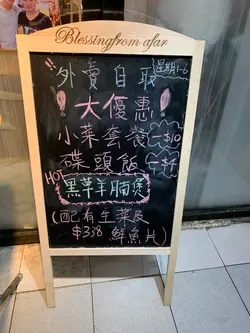 Blessingfrom afar
外賣自取 星期1-6
！大優惠！
小菜套餐 -$10
碟頭飯 -$5
HOT 黑草羊腩煲
(配有生菜及
$358 鮮魚片)